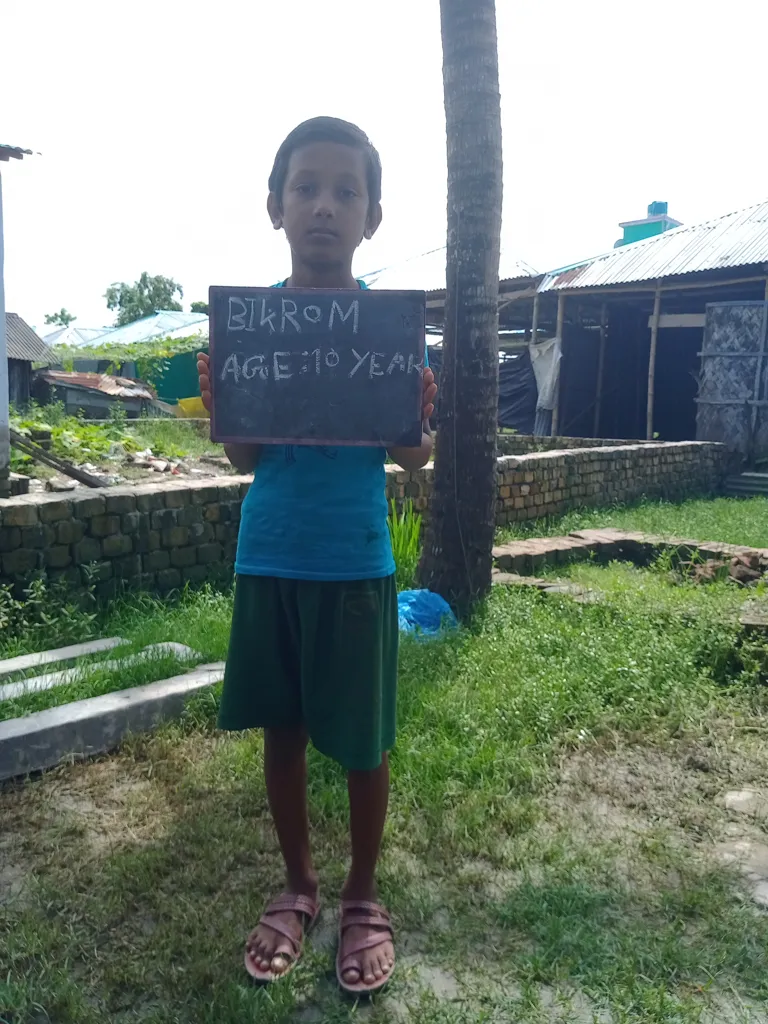 BIKROM
AGE:10 YEAR